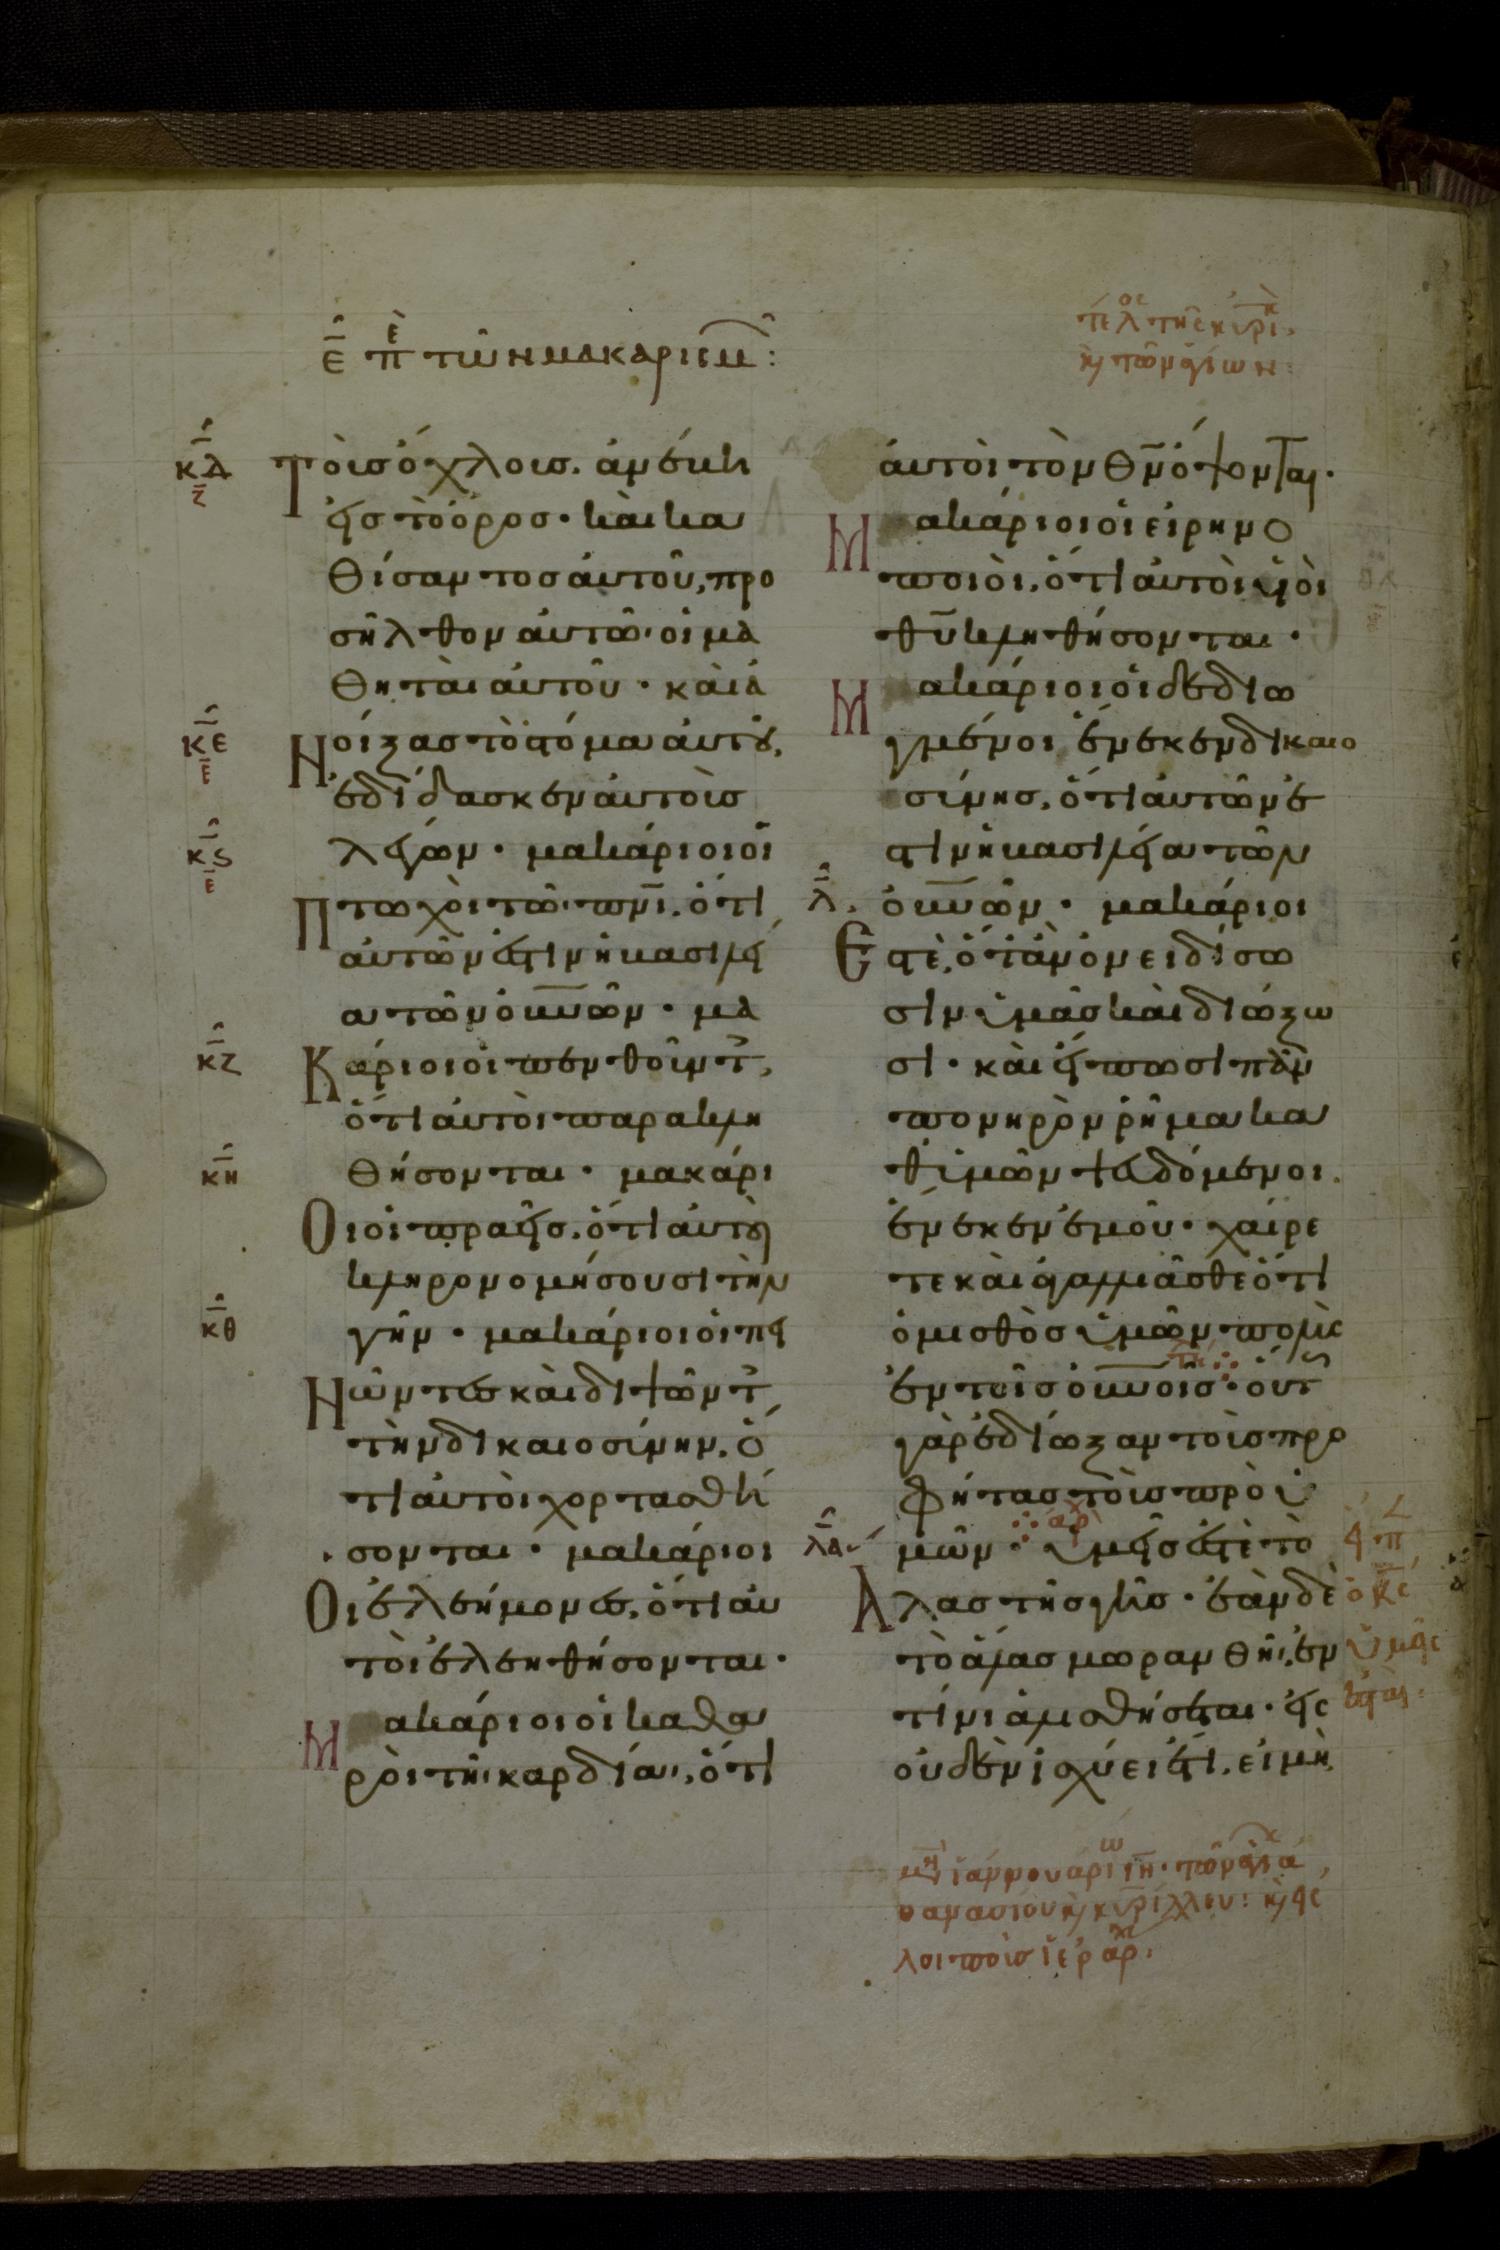 ε̄ πε τῶν μακαρισμ:
τελος της κυρι,
κ τῶν ἁγίων:
κδ
ζ
Τοὺς ὄχλους. ἀνέβη
εἰς τὸ ὄρος· καὶ κα
θίσαντος αὐτοῦ, προ
σῆλθον αὐτῶ· οἱ μα
θηταὶ αὐτοῦ· καὶ ἀ
κε
ε
Νοίξας τὸ στόμα αὐτοῦ,
ἐδίδασκεν αὐτοὺς
κς
ε
λέγων· μακάριοι οἱ
Πτωχοὶ τῶ πνι, ὅτι
αὐτῶν ἐστιν ἡ βασιλεί
α τῶν οὐνῶν· μα
κζ
Κάριοι οἱ πενθοῦντ,
ὅτι αὐτοὶ παρακλη
κη
θήσονται· μακάρι
Οι οἱ πραεῖς, ὅτι αὐτοὶ
κληρονομήσουσι τὴν
κθ
γῆν· μακάριοι οἱ πει
Νῶντες καὶ διψῶντ
τὴν δικαιοσύνην, ὅ
τι αὐτοὶ χορτασθή
σονται· μακάριοι
Οἱ ἐλεήμονες, ὅτι αὐ
τοὶ ἐλεηθήσονται·
Μακάριοι οἱ καθα
ροὶ τῆ καρδία, ὅτι
αὐτοὶ τὸν θν ὄψονται·
Μακάριοι οἱ εἰρηνο
ποιοὶ, ὅτι αὐτοὶ υἱοὶ
θυ κληθήσονται·
Μακάριοι οἱ δεδιω
γμένοι ἕνεκεν δικαιο
σύνης, ὅτι αὐτῶν ἐ
στιν ἡ βασιλεία τῶν
λ
οὐνῶν· μακάριοι
Ἐστὲ, ὅταν ὀνειδίσω
σιν ὑμᾶς καὶ διώξω
σι· καὶ εἴπωσι πᾶν
πονηρὸν ῥῆμα κα
θ ὑμῶν ψευδόμενοι
ἕνεκεν ἐμοῦ· χαίρε
τε καὶ ἀγαλλιᾶσθε ὅτι
ὁ μισθὸς ὑμῶν πολὺς
ἐν τοῖς οὐνοῖς· οὕτως
γὰρ ἐδίωξαν τοὺς προ
φήτας τοὺς πρὸ ὑ
λα
αρχ
μῶν· ὑμεῖς ἐστὲ τὸ
Ἅλας τῆς γῆς· ἐὰν δὲ
τὸ ἅλας μωρανθῆ, ἐν
τίνι ἁλισθήσεται· εἰς
οὐδὲν ἰσχύει ἔτι, εἰ μὴ
εἰπ
ὁ κς
ὑμεῖς
ἐστε
μη ἰαννουαριω ιη· τῶν ἁγι ἀ
θανασίου κ κυρίλλου: κ εἰς
λοιποὺς ἱεράρχ.